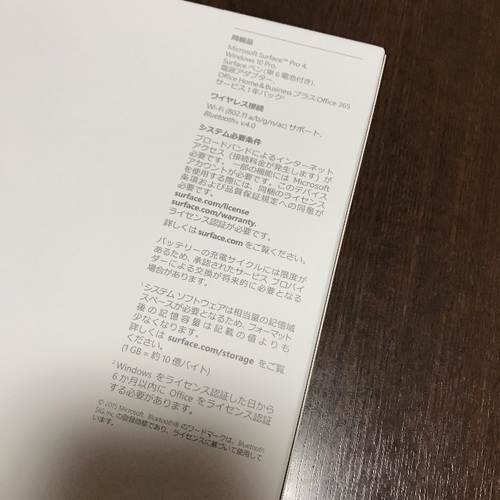 同梱品
Microsoft Surface™ Pro 4、
Windows 10 Pro、
Surface ペン (単 6 電池付き)、
電源アダプター、
Office Home & Business プラス Office 365
サービス 1 年パック²
ワイヤレス接続
Wi-Fi (802.11 a/b/g/n/ac) サポート、
Bluetooth® v.4.0
システム必要条件
ブロードバンドによるインターネット
アクセス (接続料金が発生します) が
必要です。一部の機能には Microsoft
アカウントが必要です。このデバイス
を使用する際には、同梱のライセンス
条項および品質保証規定への同意が
必要です。
surface.com/license
surface.com/warranty.
ライセンス認証が必要です。
詳しくは surface.com をご覧ください。
バッテリーの充電サイクルには限度が
あるため、承認されたサービス プロバイ
ダーによる交換が将来的に必要となる
場合があります。
¹ システム ソフトウェアは相当量の記憶域
スペースが必要となるため、フォーマット
後の記憶容量は記載の値よりも
少なくなります。
詳しくは surface.com/storage をご覧
ください。
(1 GB = 約 10 億バイト)
² Windows をライセンス認証した日から
6 か月以内に Office をライセンス認証
する必要があります。
© 2015 Microsoft. Bluetooth® のワードマークは、Bluetooth
SIG, Inc. の登録商標であり、ライセンスに基づいて使用して
います。